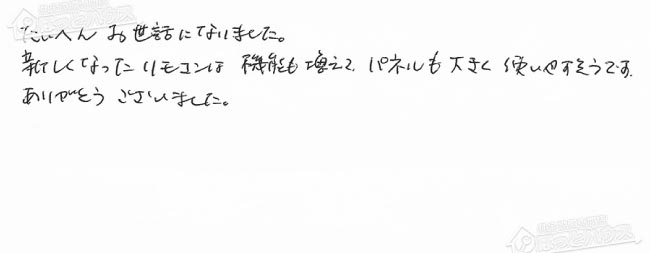 たいへん お世話になりました。
新しくなったリモコンは 機能も増えて、パネルも大きく 使いやすそうです。
ありがとう ございました。